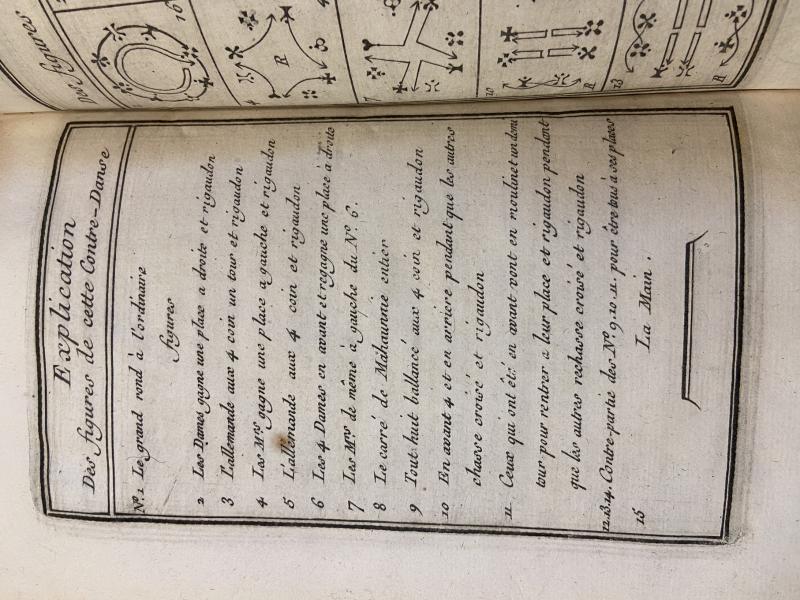 Explication
Des figures de cette Contre-Danse
No. 1 Le grand rond à l'ordinaire
figures
2 Les Dames gagne une place a droite et rigaudon
3 L'allemande aux 4 coin un tour et rigaudon
4 Les Mrs gagne une place a gauche et rigaudon
5 L'allemande aux 4 coin et rigaudon
6 Les 4 Dames en avant et regagne une place à droite
7 Les Mrs de même à gauche du No. 6.
8 Le carré de Mahaunnie entier
9 Tout huit ballancé aux 4 coin et rigaudon
10 En avant 4 et en arriere pendant que les autres
chasse croisé et rigaudon
11 Ceux qui ont êté en avant vont en moulinet un demi
tour pour rentrer a leur place et rigaudon pendant
que les autres rechasse croisé et rigaudon
12.13.14. Contre-partie des No. 9. 10. 11. pour être tous à ses places
15 La Main.
Des figures
16
4
R
7
10
R
13
R